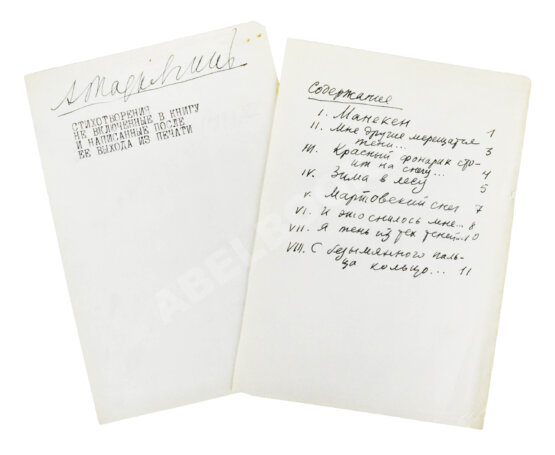 А Тарковский
СТИХОТВОРЕНИЯ
НЕ ВКЛЮЧЕННЫЕ В КНИГУ
И НАПИСАННЫЕ ПОСЛЕ
ЕЕ ВЫХОДА ИЗ ПЕЧАТИ
Содержание
I. Манекен 1
II. Мне другие мерещатся
тени... 3
III. Красный фонарик сто-
ит на снегу... 4
IV. Зима в лесу 5
V. Мартовский снег 7
VI. И это снилось мне... 8
VII. Я тень из тех теней... 10
VIII. С безымянного паль-
ца кольцо... 11